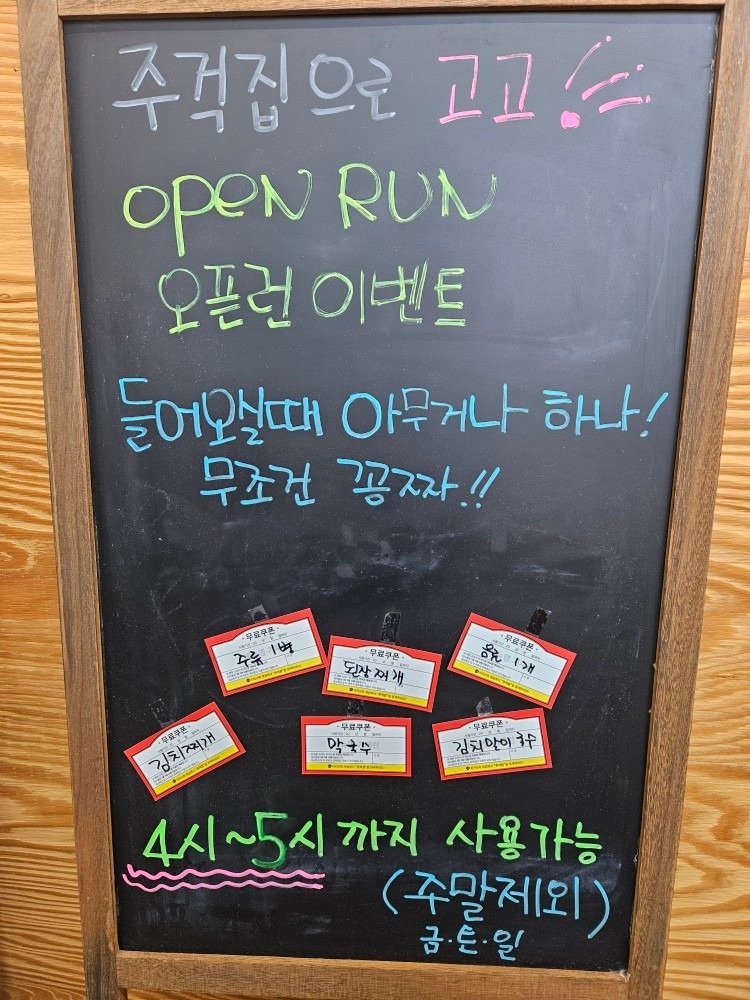 주걱집으로 고고!
OPEN RUN
오픈런 이벤트
들어오실때 아무거나 하나!
무조건 꽁짜!!
무료쿠폰
주류 1병
무료쿠폰
된장찌개
무료쿠폰
음료 1개
무료쿠폰
김치찌개
무료쿠폰
막국수
무료쿠폰
김치말이국수
4시~5시까지 사용가능
(주말제외)
금·토·일